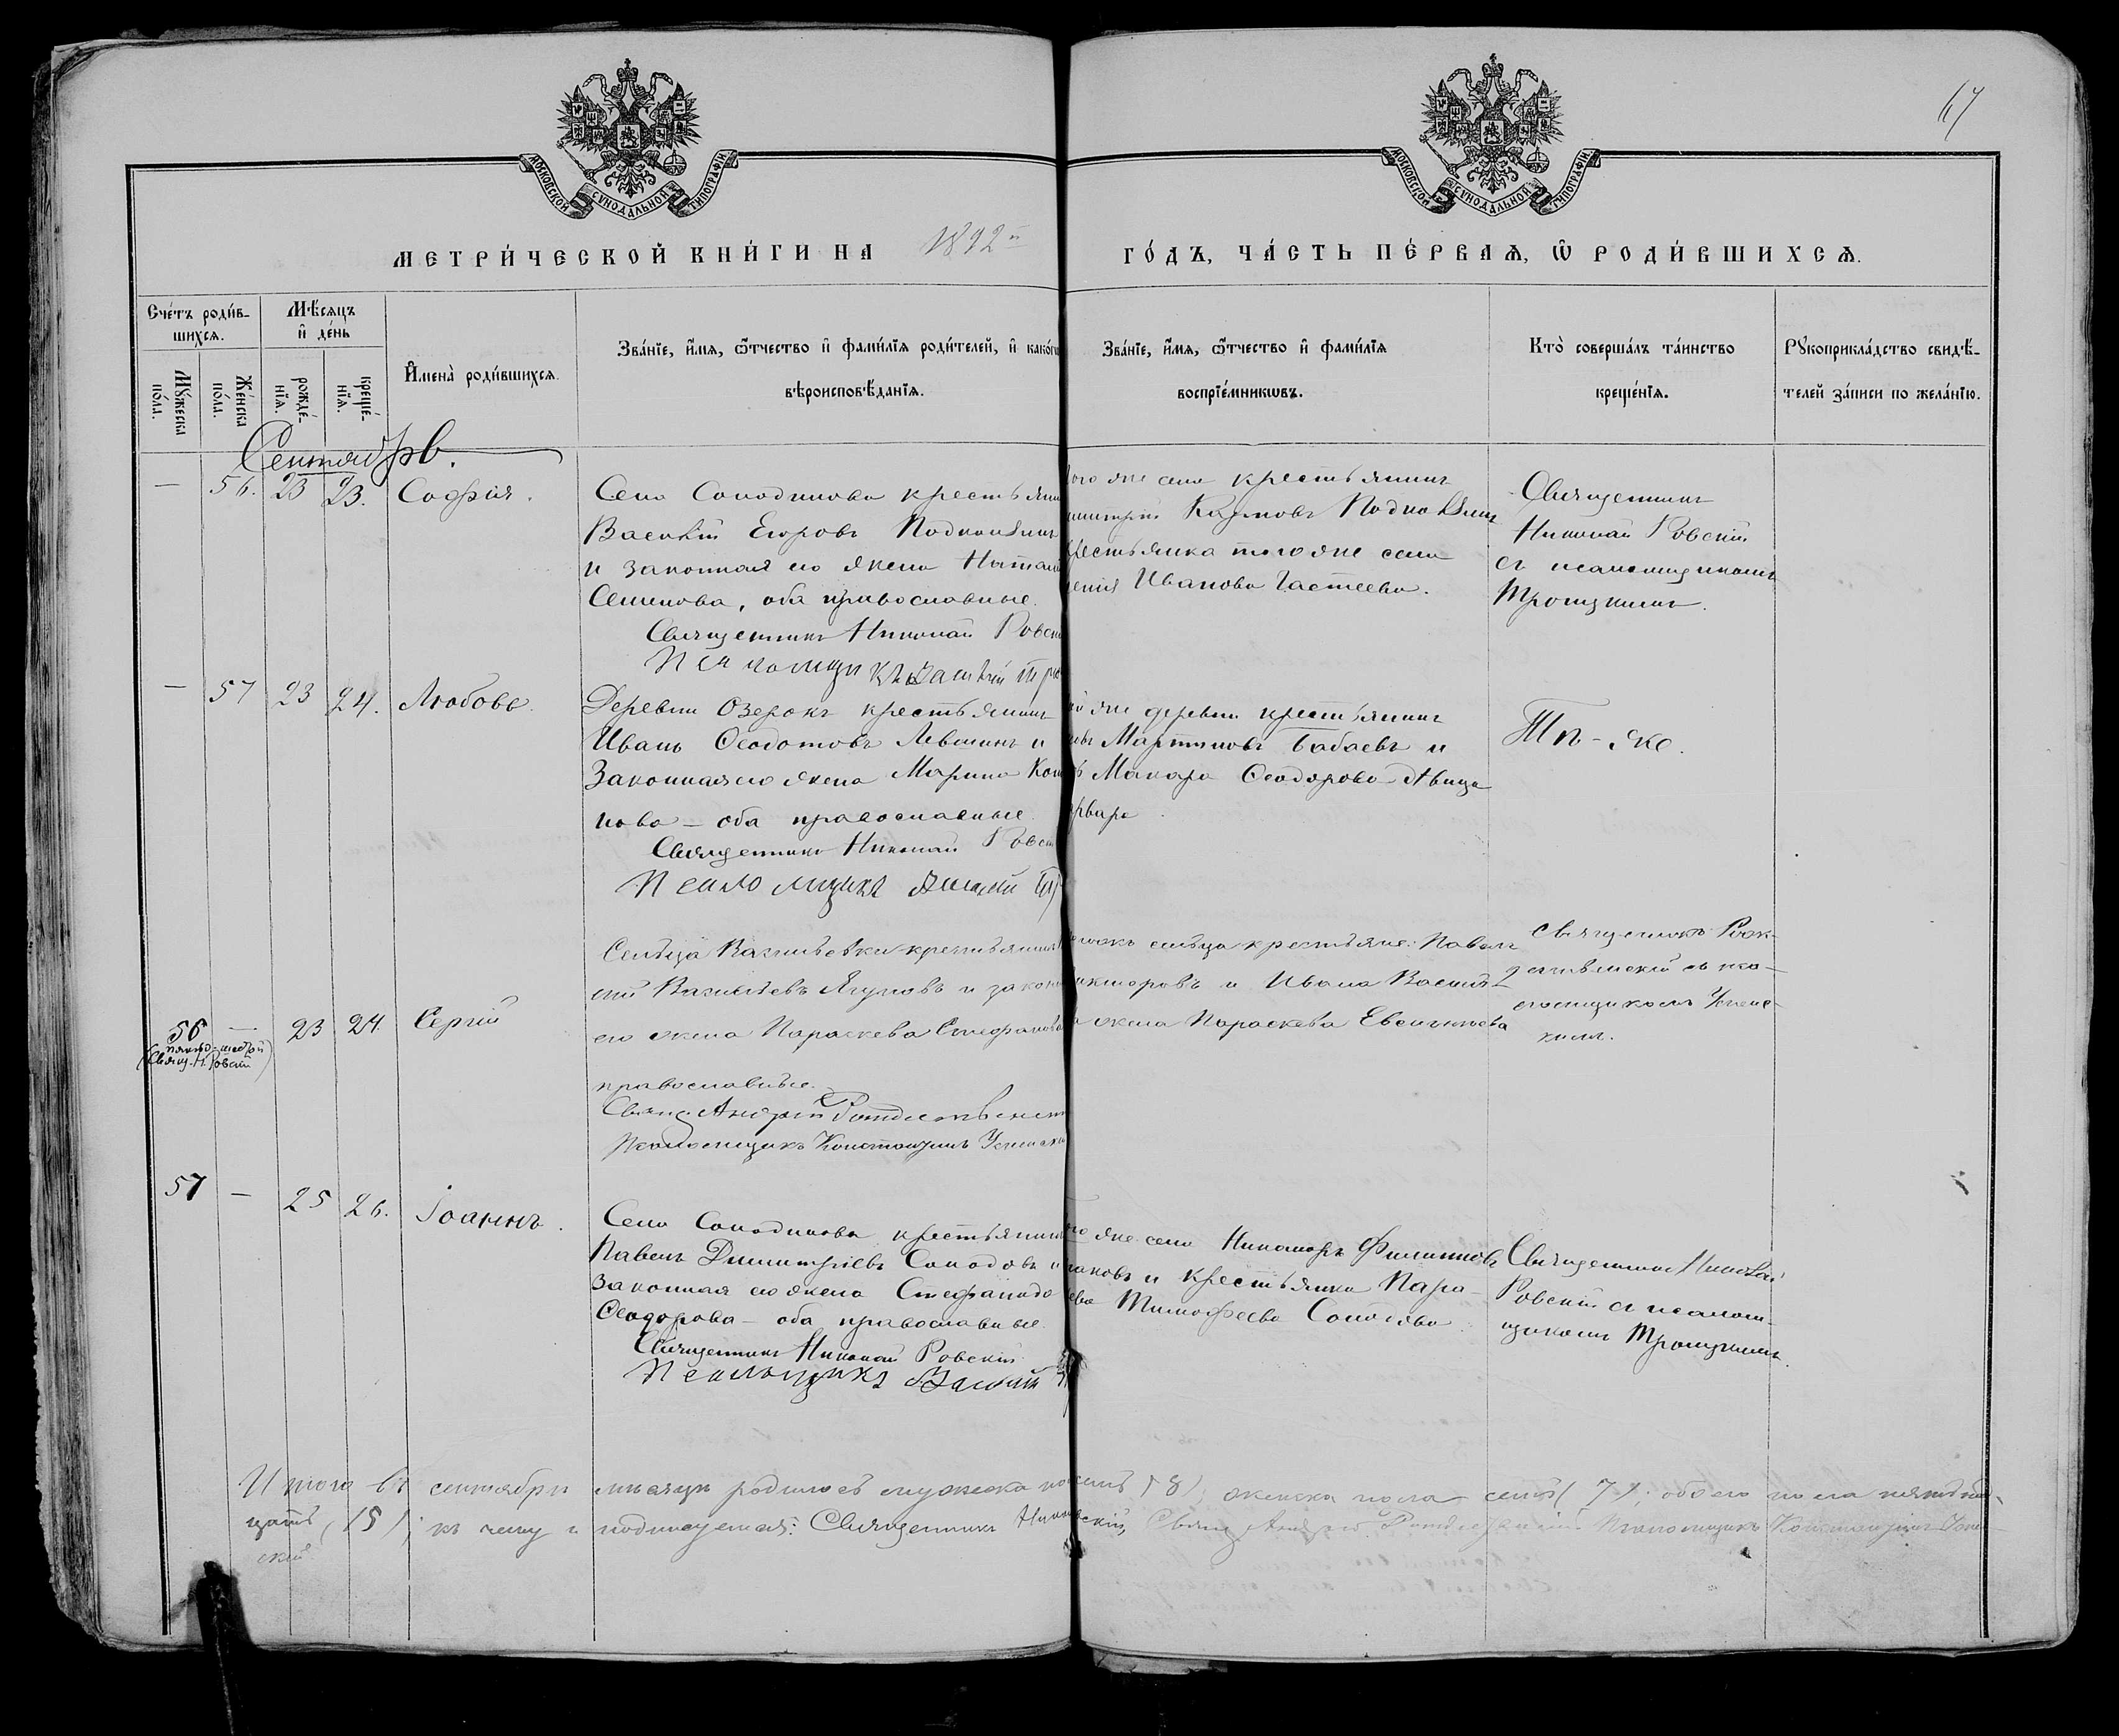 67
МОСКОВСКОЙ СѴНОДАЛЬНОЙ ТИПОГРАФІИ.
МОСКОВСКОЙ СѴНОДАЛЬНОЙ ТИПОГРАФІИ.
МЕТРИ́ЧЕСКОЙ КНИ́ГИ НА 1892 й ГО́ДЪ, ЧА́СТЬ ПЕ́РВАѦ, Ѡ҆ РОДИ́ВШИХСѦ.
Сче́тъ роди́в-
шихсѧ.
Мꙋ́жеска по́ла.
Же́нска по́ла.
Мѣ́сѧцъ
и҆ де́нь
рожде́-
нїѧ.
креще́-
нїѧ.
И҆мена̀ роди́вшихсѧ.
Зва́нїе, и҆́мѧ, ѻ҆́тчество и҆ фами́лїѧ роди́телей, и҆ како́гѡ
вѣроисповѣ́данїѧ.
Зва́нїе, и҆́мѧ, ѻ҆́тчество и҆ фами́лїѧ
воспрїе́мникѡвъ.
Кто̀ соверша́лъ та́инство
креще́нїѧ.
Рꙋкоприкла́дство свидѣ́-
телей за́писи по жела́нїю.
Сентябрь.
— 56. 23 23. Софія.
Села Солодилова крестьянин
Василій Егоровъ
и законная его жена Натал
Семенова, оба православные.
Священникъ Николай Ровск
того же села крестьянинъ
Карповъ
крестьянка того же села
Иванова
Священникъ
Николай Ровскій
съ псаломщикомъ
Троицкимъ.
— 57 23 24. Любовь.
Деревни Озерокъ крестьянинъ
Иванъ Ѳеодотовъ Левшинъ и
Законная его жена Марина
нова — оба православные.
Священникъ Николай Ровск
Псаломщикъ
же деревни крестьянинъ
Мартиновъ Бабаевъ и
Макара Ѳеодорова дѣвица
рвара
Тѣ-же.
56 — 23 24. Сергій
(пятьд-шестой
Свящ. Н. Ровскій)
Сельца Васильевки крестьянинъ
Васильевъ Ягуповъ и закон
его жена Параскева Стефанова
православные.
Свящ. Андрей Рождественск
Псаломщикъ Константинъ Успенск
сельца крестьяне: Павелъ
икторовъ и Ивана Василь
жена Параскева
Священникъ Рож-
дественскій съ пса-
ломщикомъ Успенс-
кимъ.
57 — 25 26. Іоаннъ.
Села Солодилова крестьянинъ
Павелъ Димитріевъ Солодовъ и
законная его жена Стефанида
Ѳеодорова — оба православные.
Священникъ Николай Ровскій
Псаломщикъ Василій
того же села Никаноръ Филипповъ
и крестьянка Пара-
ева Тимофеева
Священникъ Николай
Ровскій съ псалом-
щикомъ Троицкимъ.
Итого въ сентябрѣ мѣсяцѣ родилось мужеска пола (8), женска пола семь (7), обоего пола пятнад-
цать (15); къ чему и подписуемся: Священникъ Свящ. Андрей Рождественскій Псаломщикъ Константинъ Успен-
скій